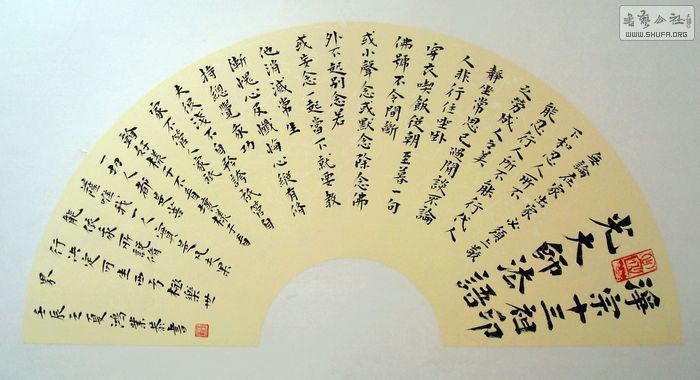 書藝公社
WWW.SHUFA.ORG
淨宗十三祖印
光大師法語
無論在家出家必須上敬
下和忍人所不
能忍行人所不能行代人
之勞成人之美
靜坐常思己過閒談不論
人非行住坐卧
穿衣喫飯從朝至暮一句
佛號不令間斷
或小聲念或默念除念佛
外不起別念若
或妄念一起當下就要教
他消滅常生
慚愧心及懺悔心縱有修
持總覺我功
夫很淺不自矜誇祇管自
家不管人家祇看
好樣子不看壞樣子看
一切人都是菩
薩唯我一人實是凡夫果
能依我所說修
行決定可生西方極樂世
界
壬辰之夏鴻業恭書